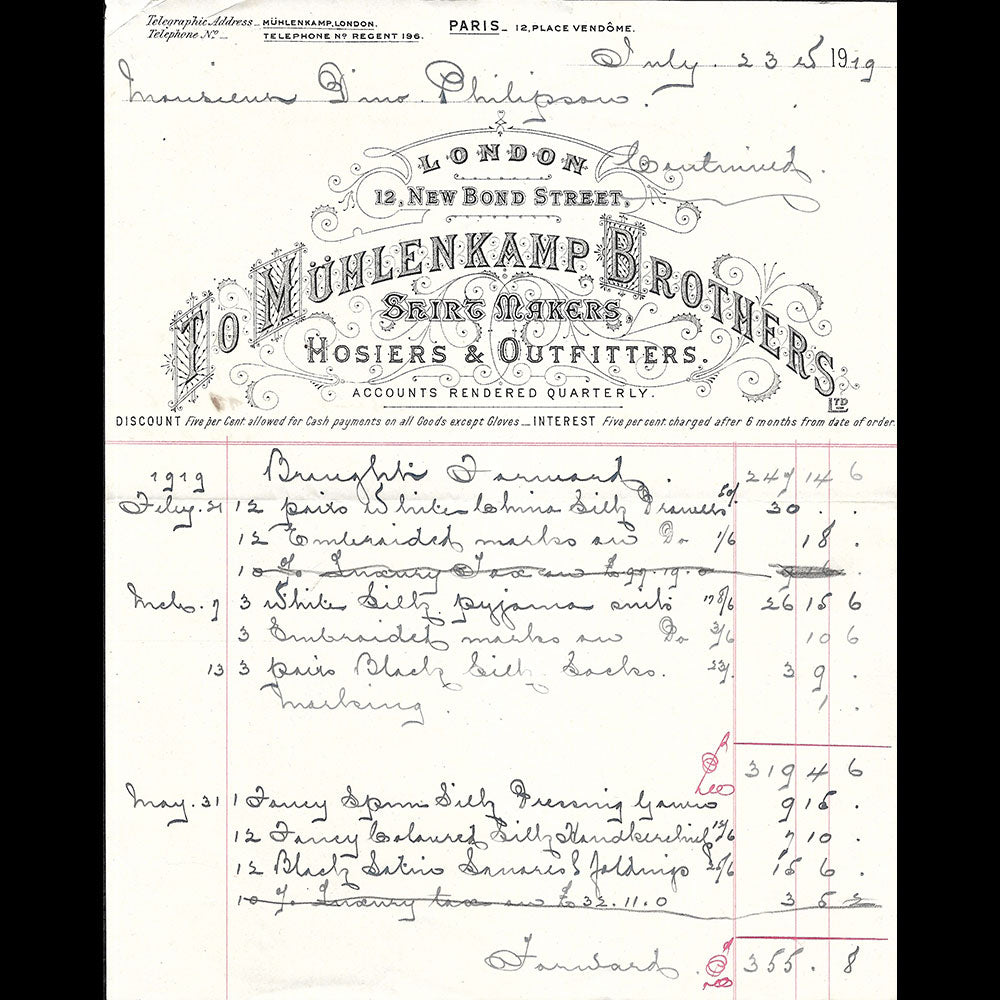 Telegraphic Address_ MÜHLENKAMP, LONDON.
Telephone Nº_ TELEPHONE Nº REGENT 196.
PARIS_ 12, PLACE VENDÔME.
July. 23rd 1919
Monsieur Dino. Philipson.
LONDON
Continued.
12, NEW BOND STREET,
TO MÜHLENKAMP BROTHERS LTD
SHIRT MAKERS,
HOSIERS & OUTFITTERS.
ACCOUNTS RENDERED QUARTERLY.
DISCOUNT Five per Cent. allowed for Cash payments on all Goods except Gloves_ INTEREST Five per cent. charged after 6 months from date of order.
1919 Brought Forward. 247 14 6
Feby. 21 12 pairs White China Silk Drawers 50/. 30 . .
12 Embroided marks on Do 1/6 18 .
10 % Luxury Tax on £97.19.0
Mch. 7 3 White Silk pyjama suits 178/6 26 15 6
3 Embroided marks on Do 3/6 10 6
13 3 pairs Black Silk Socks. 23/. 3 9 .
Marking. 1 .
319 4 6
May. 31 1 Fancy Spun Silk Dressing Gown 9 15 .
12 Fancy Coloured Silk Handkerchief 12/6 7 10 .
12 Black Satin Squares & foldings 25/6 15 6 .
10 % Luxury tax on £32.11.0 3 5 2
Forward. 355 . 8